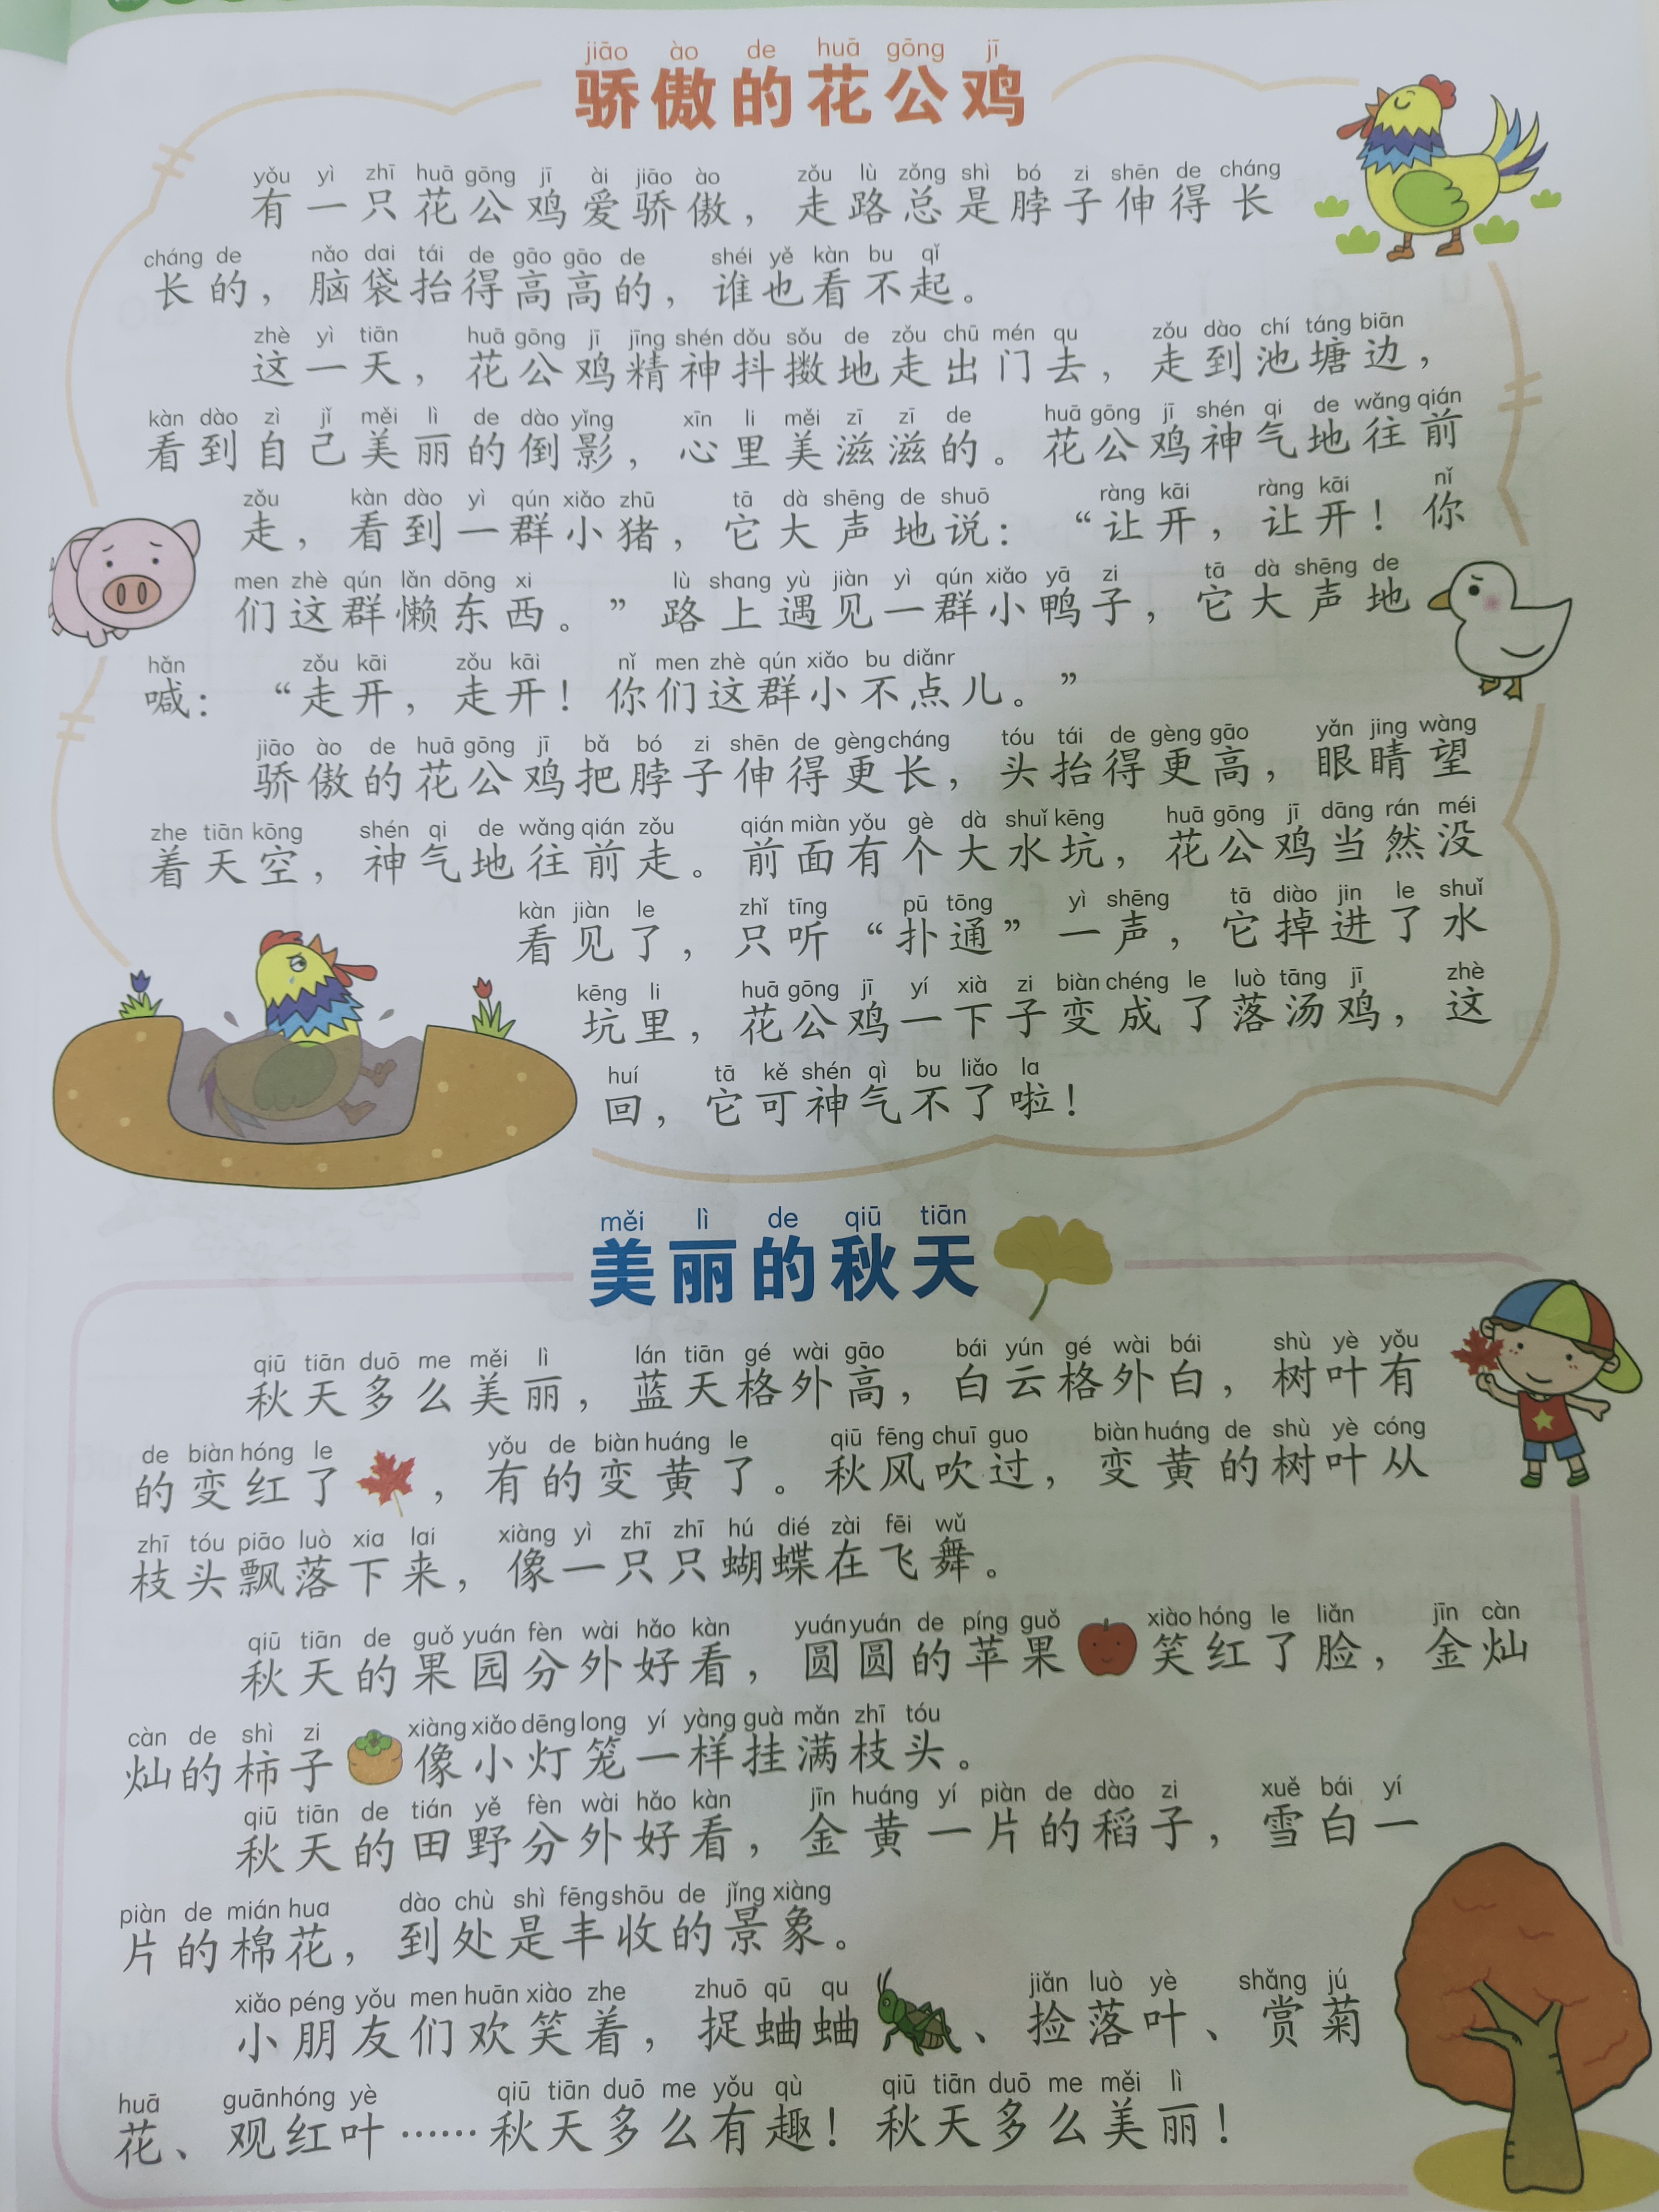 jiāo ào de huā gōng jī
骄傲的花公鸡
yǒu yì zhī huā gōng jī ài jiāo ào zǒu lù zǒng shì bó zi shēn de cháng
有一只花公鸡爱骄傲，走路总是脖子伸得长
cháng de nǎo dai tái de gāo gāo de shéi yě kàn bu qǐ
长的，脑袋抬得高高的，谁也看不起。
zhè yì tiān huā gōng jī jīng shén dǒu sǒu de zǒu chū mén qu zǒu dào chí táng biān
这一天，花公鸡精神抖擞地走出门去，走到池塘边，
kàn dào zì jǐ měi lì de dào yǐng xīn li měi zī zī de huā gōng jī shén qi de wǎng qián
看到自己美丽的倒影，心里美滋滋的。花公鸡神气地往前
zǒu kàn dào yì qún xiǎo zhū tā dà shēng de shuō ràng kāi ràng kāi nǐ
走，看到一群小猪，它大声地说：“让开，让开！你
men zhè qún lǎn dōng xi lù shang yù jiàn yì qún xiǎo yā zi tā dà shēng de
们这群懒东西。”路上遇见一群小鸭子，它大声地
hǎn zǒu kāi zǒu kāi nǐ men zhè qún xiǎo bu diǎnr
喊：“走开，走开！你们这群小不点儿。”
jiāo ào de huā gōng jī bǎ bó zi shēn de gèng cháng tóu tái de gèng gāo yǎn jing wàng
骄傲的花公鸡把脖子伸得更长，头抬得更高，眼睛望
zhe tiān kōng shén qi de wǎng qián zǒu qián miàn yǒu gè dà shuǐ kēng huā gōng jī dāng rán méi
着天空，神气地往前走。前面有个大水坑，花公鸡当然没
kàn jiàn le zhǐ tīng pū tōng yì shēng tā diào jin le shuǐ
看见了，只听“扑通”一声，它掉进了水
kēng li huā gōng jī yí xià zi biàn chéng le luò tāng jī zhè
坑里，花公鸡一下子变成了落汤鸡，这
huí tā kě shén qì bu liǎo la
回，它可神气不了啦！
měi lì de qiū tiān
美丽的秋天
qiū tiān duō me měi lì lán tiān gé wài gāo bái yún gé wài bái shù yè yǒu
秋天多么美丽，蓝天格外高，白云格外白，树叶有
de biàn hóng le yǒu de biàn huáng le qiū fēng chuī guo biàn huáng de shù yè cóng
的变红了，有的变黄了。秋风吹过，变黄的树叶从
zhī tóu piāo luò xia lai xiàng yì zhī zhī hú dié zài fēi wǔ
枝头飘落下来，像一只只蝴蝶在飞舞。
qiū tiān de guǒ yuán fèn wài hǎo kàn yuán yuán de píng guǒ xiào hóng le liǎn jīn càn
秋天的果园分外好看，圆圆的苹果笑红了脸，金灿
càn de shì zi xiàng xiǎo dēng long yí yàng guà mǎn zhī tóu
灿的柿子像小灯笼一样挂满枝头。
qiū tiān de tián yě fèn wài hǎo kàn jīn huáng yí piàn de dào zi xuě bái yí
秋天的田野分外好看，金黄一片的稻子，雪白一
piàn de mián hua dào chù shì fēng shōu de jǐng xiàng
片的棉花，到处是丰收的景象。
xiǎo péng yǒu men huān xiào zhe zhuō qū qu jiǎn luò yè shǎng jú
小朋友们欢笑着，捉蛐蛐、捡落叶、赏菊
huā guān hóng yè qiū tiān duō me yǒu qù qiū tiān duō me měi lì
花、观红叶……秋天多么有趣！秋天多么美丽！